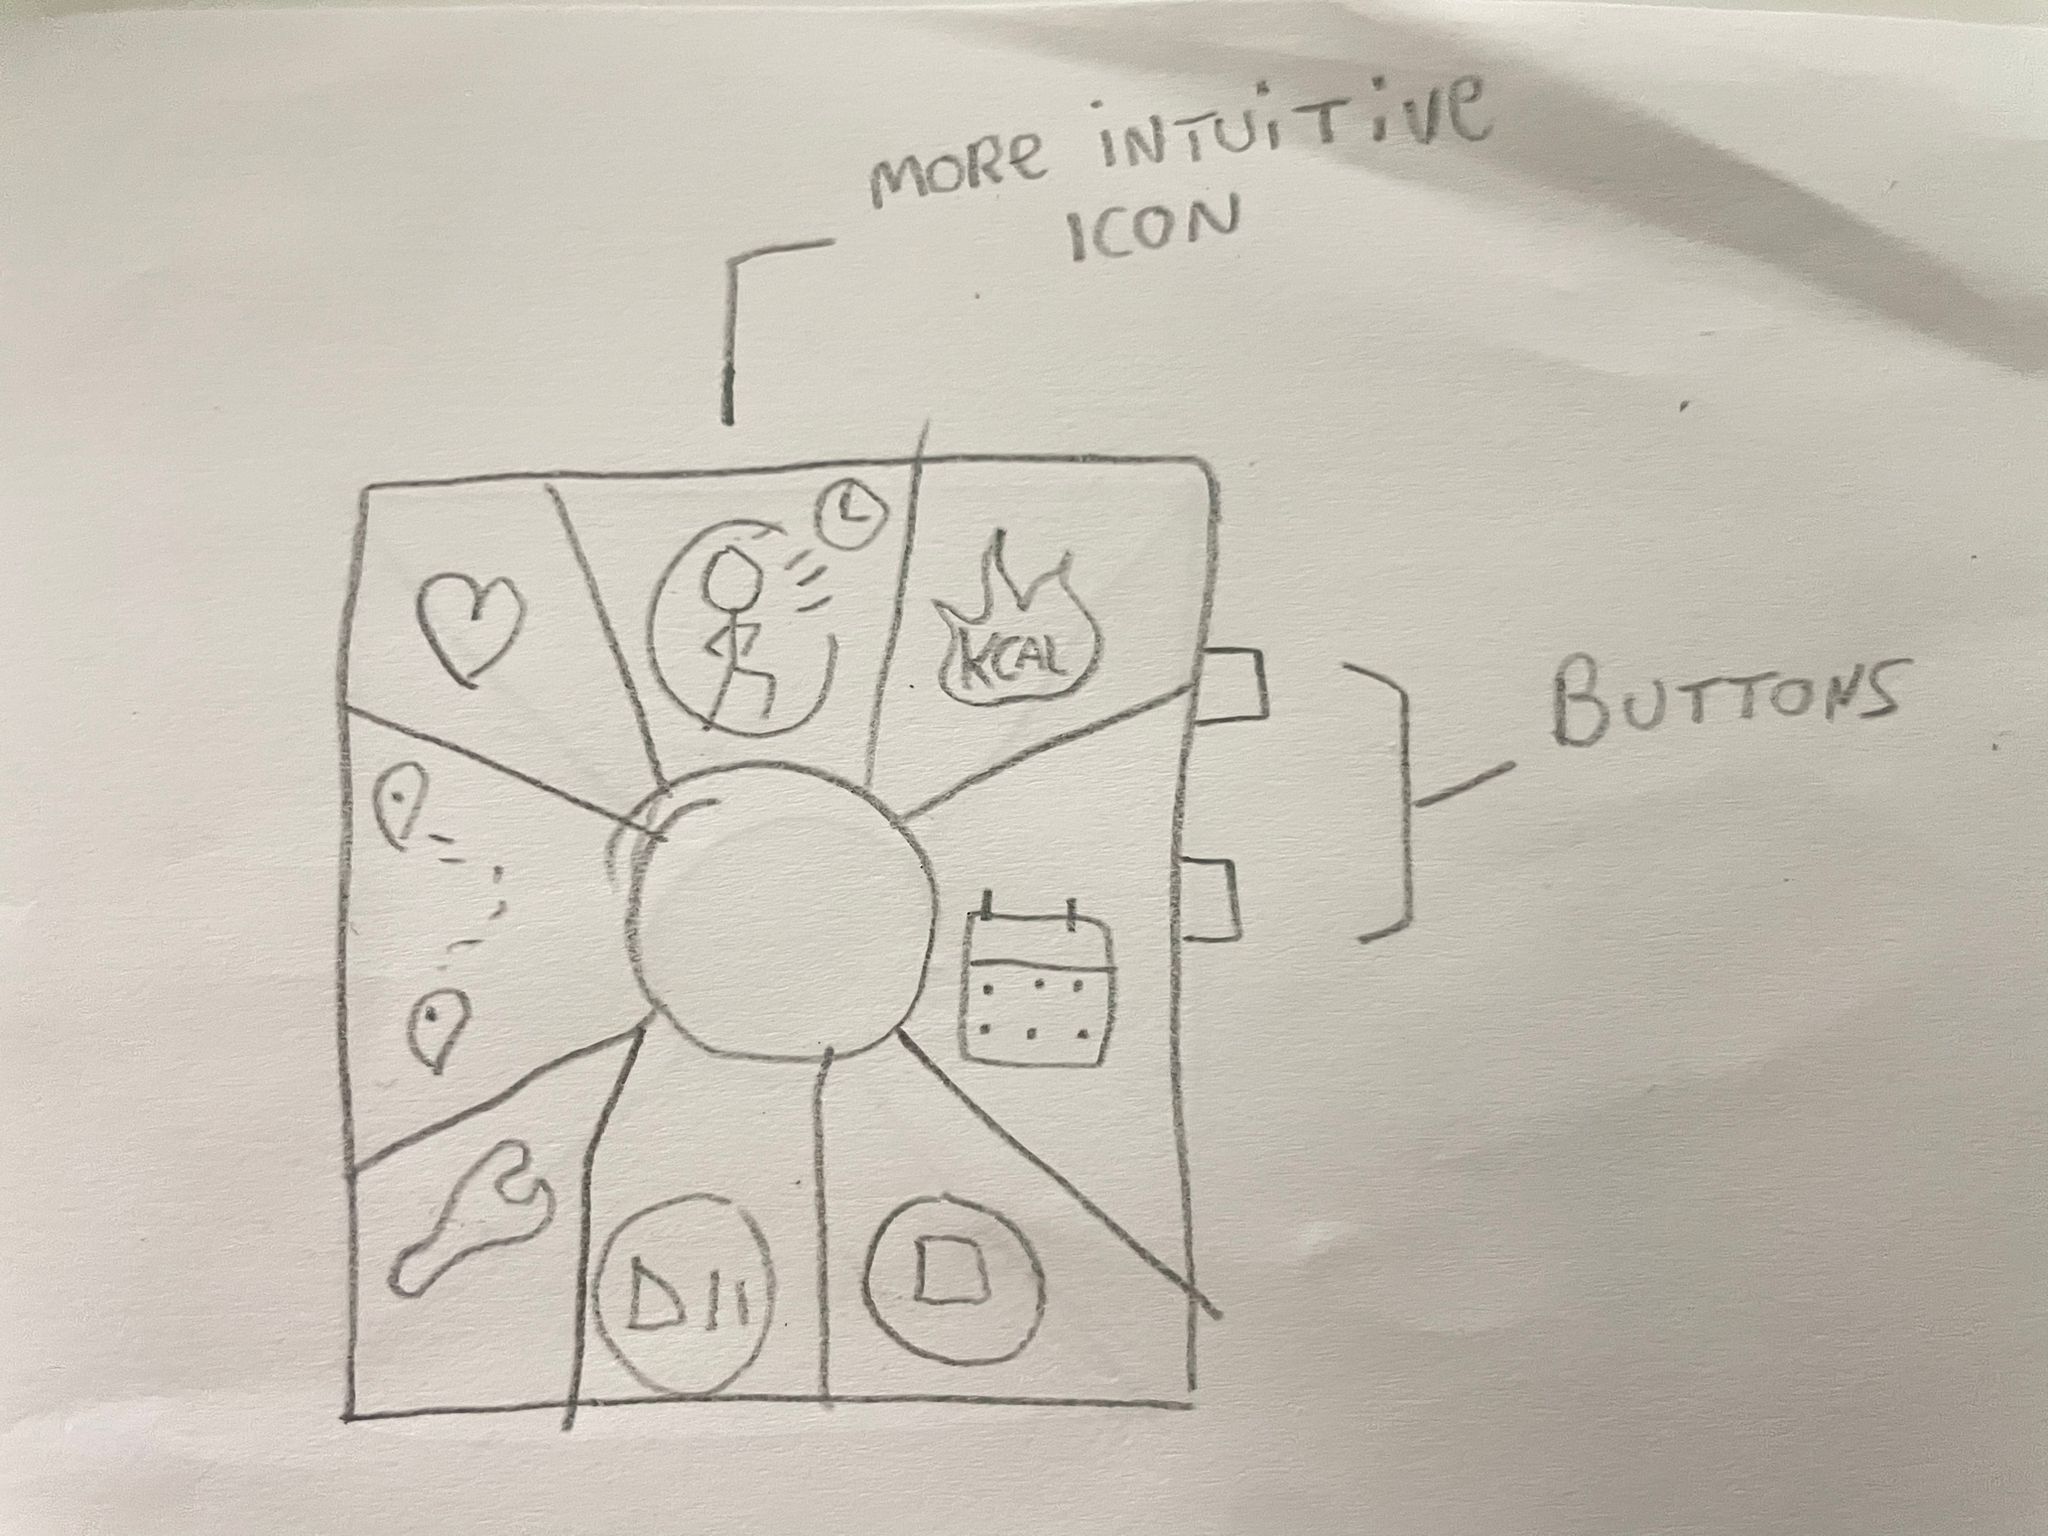 MORE iNTUiTiVE
ICON
KCAL
BUTTONS